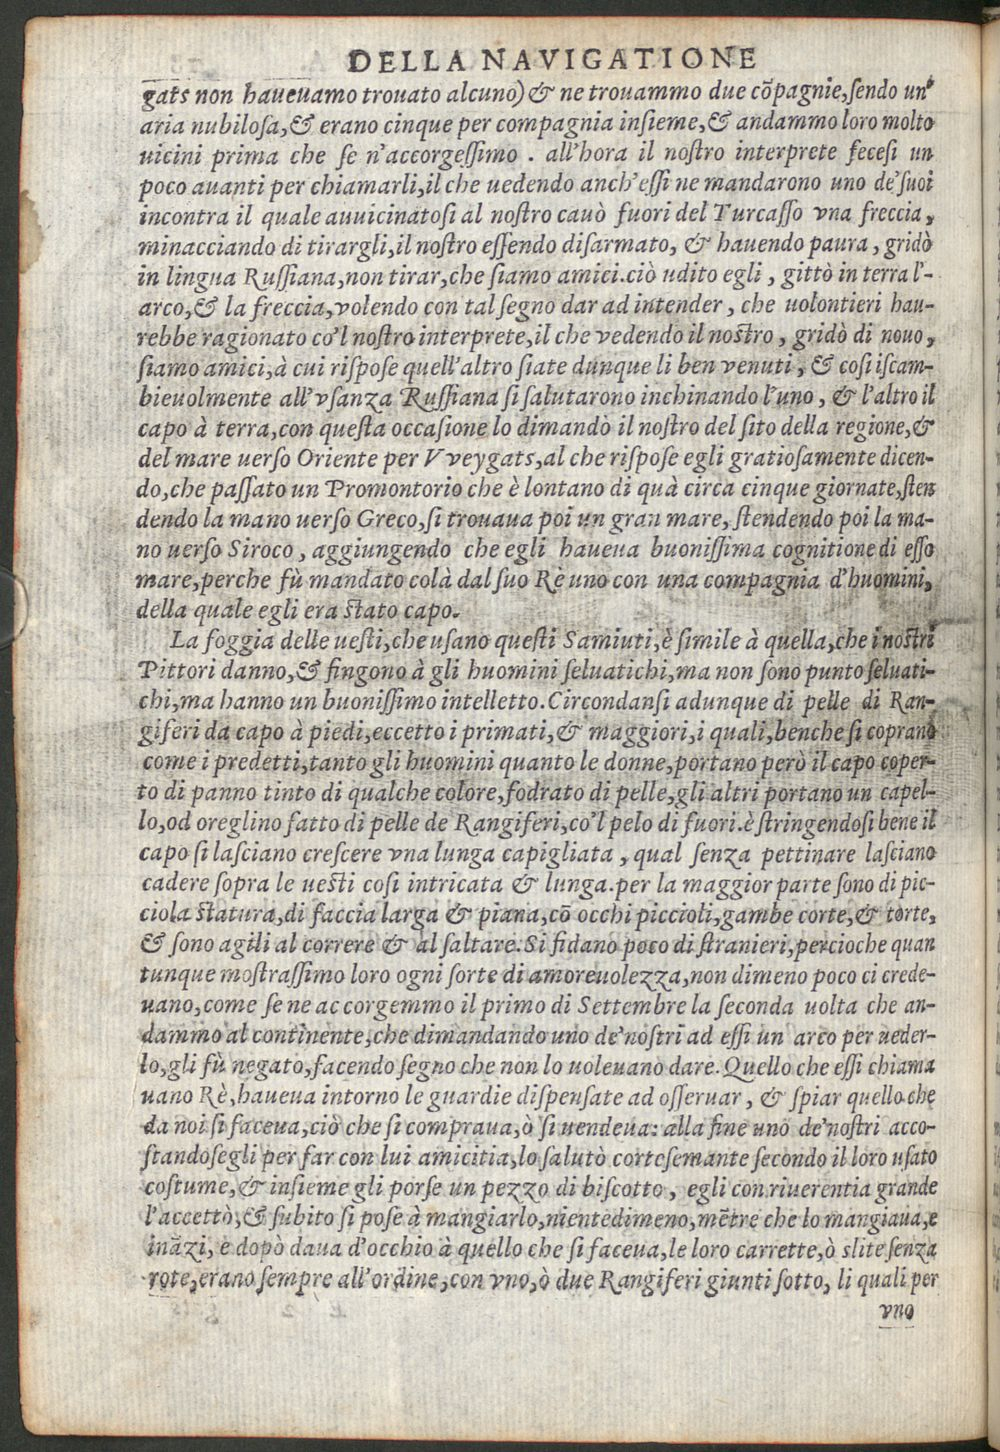 DELLA NAVIGATIONE
gats non haueuamo trouato alcuno) & ne trouammo due cõpagnie, sendo un'
aria nubilosa, & erano cinque per compagnia insieme, & andammo loro molto
uicini prima che se n'accorgessimo . all'hora il nostro interprete fecesi un
poco auanti per chiamarli, il che uedendo anch'essi ne mandarono uno de'suoi
incontra il quale auuicinatosi al nostro cauò fuori del Turcasso vna freccia,
minacciando di tirargli, il nostro essendo disarmato, & hauendo paura, gridò
in lingua Russiana, non tirar, che siamo amici. ciò udito egli, gittò in terra l'-
arco, & la freccia, volendo con tal segno dar ad intender, che uolontieri hau-
rebbe ragionato co'l nostro interprete, il che vedendo il nostro, gridò di nouo,
siamo amici, à cui rispose quell'altro siate dunque li ben venuti, & cosi iscam-
bieuolmente all'vsanza Russiana si salutarono inchinando l'uno, & l'altro il
capo à terra, con questa occasione lo dimandò il nostro del sito della regione, &
del mare uerso Oriente per Vveygats, al che rispose egli gratiosamente dicen-
do, che passato un Promontorio che è lontano di quà circa cinque giornate, sten
dendo la mano uerso Greco, si trouaua poi un gran mare, stendendo poi la ma-
no uerso Siroco, aggiungendo che egli haueua buonissima cognitione di esso
mare, perche fù mandato colà dal suo Rè uno con una compagnia d'huomini,
della quale egli era stato capo.
La foggia delle uesti, che usano questi Samiuti, è simile à quella, che i nostri
Pittori danno, & fingono à gli huomini seluatichi, ma non sono punto seluati-
chi, ma hanno un buonissimo intelletto. Circondansi adunque di pelle di Ran-
giferi da capo à piedi, eccetto i primati, & maggiori, i quali, benche si coprano
come i predetti, tanto gli huomini quanto le donne, portano però il capo coper-
to di panno tinto di qualche colore, fodrato di pelle, gli altri portano un capel-
lo, od oreglino fatto di pelle de Rangiferi, co'l pelo di fuori. è stringendosi bene il
capo si lasciano crescere vna lunga capigliata, qual senza pettinare lasciano
cadere sopra le uesti cosi intricata & lunga. per la maggior parte sono di pic-
ciola statura, di faccia larga & piana, cõ occhi piccioli, gambe corte, & torte,
& sono agili al correre & al saltare. Si fidano poco di stranieri, percioche quan
tunque mostrassimo loro ogni sorte di amoreuolezza, non dimeno poco ci crede-
uano, come se ne accorgemmo il primo di Settembre la seconda uolta che an-
dammo al continente, che dimandando uno de'nostri ad essi un arco per ueder-
lo, gli fù negato, facendo segno che non lo uoleuano dare. Quello che essi chiama
uano Rè, haueua intorno le guardie dispensate ad osseruar, & spiar quello che
da noi si faceua, ciò che si compraua, ò si uendeua: alla fine uno de'nostri acco-
standosegli per far con lui amicitia, lo salutò cortesemante secondo il loro usato
costume, & insieme gli porse un pezzo di biscotto, egli con riuerentia grande
l'accettò, & subito si pose à mangiarlo, nientedimeno, mẽtre che lo mangiaua, e
inãzi, e dopò daua d'occhio à quello che si faceua, le loro carrette, ò slite senza
rote, erano sempre all'ordine, con vno, ò due Rangiferi giunti sotto, li quali per
vno